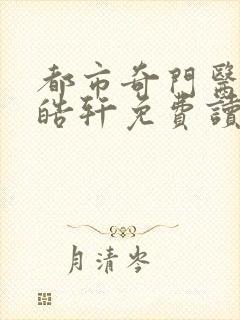 都市奇門醫
皓軒免費讀
月清岑